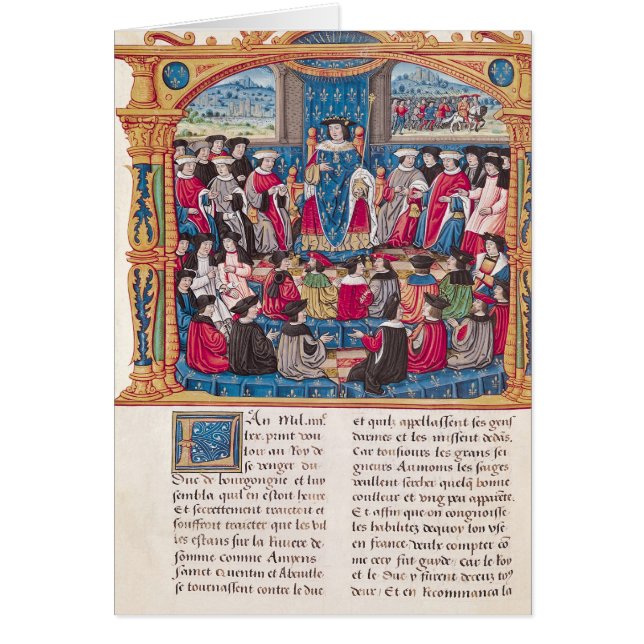 L An Mil.iiiiᶜ
lxx. print vou
loir au Roy de
se venger du
Duc de bourgongne et luy
sembla quil en estoit heure
Et secrettement traictoit et
souffroit traicter que les vil
les estans sur la Riviere de
somme comme Amyens
Sainct Quentin et Abeuille
se tournassent contre le duc
Et quilz appellassent ses gens
darmes et les missent dedãs.
Car tousiours les grans sei
gneurs Aumoins les saiges
veullent sercher quelq̃ bonne
coulleur et ung peu apparẽte.
Et affin que on congnoisse
les habilitez dequoy lon vse
en france. veulx compter cõ
me cecy fut guyde. Car le Roy
et le Duc y furent deceuz to⁹
deux / Et en Recommanca la